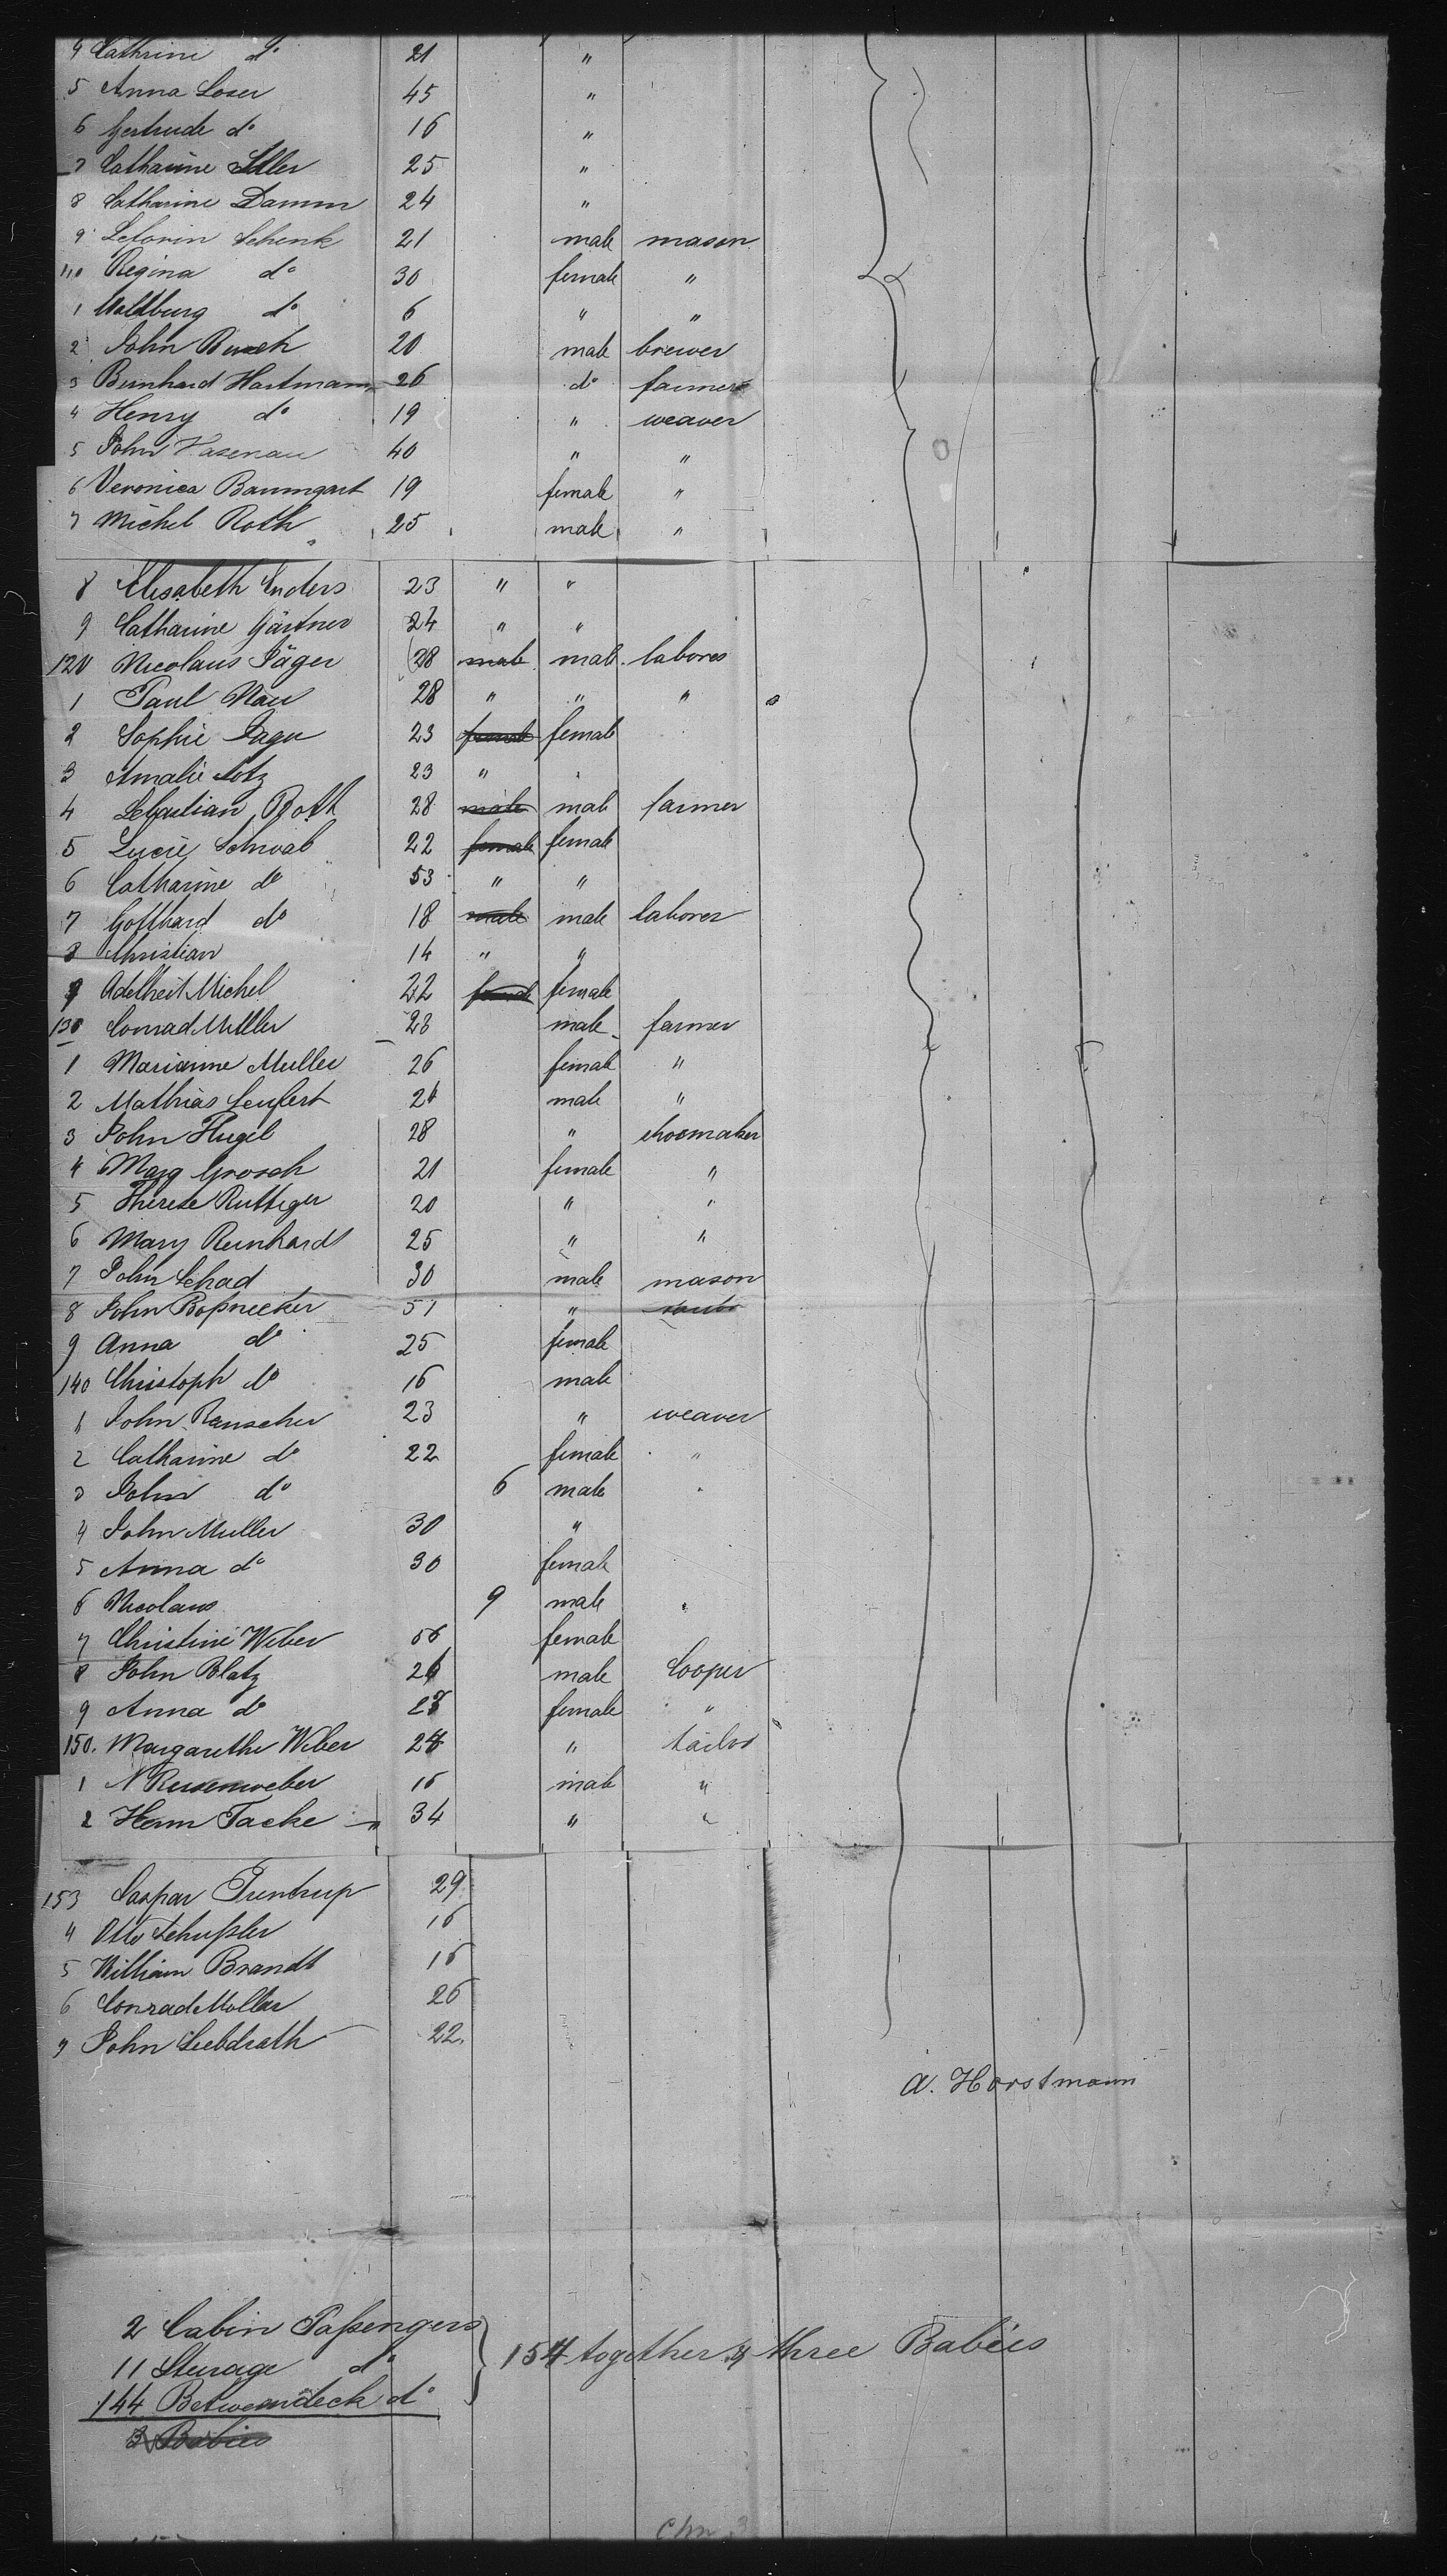 4 Cathrine do 21 "
5 Anna Loser 45 "
6 Gertrude do 16 "
7 Catharine 25 "
8 Catharine Damm 24 "
9 Schenk 21 male mason
110 Regina do 30 female "
1 Waldburg do 6 " "
2 John Busch 20 male brewer
3 Bernhard Hartmann 26 do farmer
4 Henry do 19 " weaver
5 John Hasenau 40 " "
6 Veronica Baumgart 19 female "
7 Michel Roth 25 male "
8 Elisabeth Enders 23 " "
9 Catharine Gärtner 24 " "
120 Nicolaus Jäger 28 male male labores
1 Paul Nau 28 " " "
2 Sophie 23 female female
3 Amalie Lotz 23 "
4 Sebastian Roth 28 male male farmer
5 Lucie Schwab 22 female female
6 Catharine do 53 " "
7 Gotthard do 18 male male laborer
8 Christian 14 " "
9 Adelheit Michel 22 female female
130 Conrad Müller 23 male farmer
1 Marianne Muller 26 female "
2 Mathias Seufert male "
3 John Hugel 28 " shoemaker
4 Marg Grosch 21 female "
5 Therese Ruttiger 20 " "
6 Mary Reinhardt 25 " "
7 John Schad 30 male mason
8 John Boßnecker 51 "
9 Anna do 25 female
140 Christoph do 16 male
1 John Rauscher 23 " weaver
2 Catharine do 22 female "
3 John do 6 male "
4 John Muller 30 "
5 Anna do 30 female
6 Nicolaus 9 male "
7 Christine Weber 56 female
8 John Blatz 26 male Cooper
9 Anna do female "
150. Margarethe Weber " tailor
1 N 16 male "
2 Herm Tacke 34 " "
153 Caspar Trentrup 29
4 Otto Schußler 16
5 William Brandt 16
6 Conrad Moller 26
7 John Liebdrath 22.
A. Horstmann
2 Cabin Paßengers
11 Steerage do
154 together & three Babies
144 Betweendeck do
3 Babies